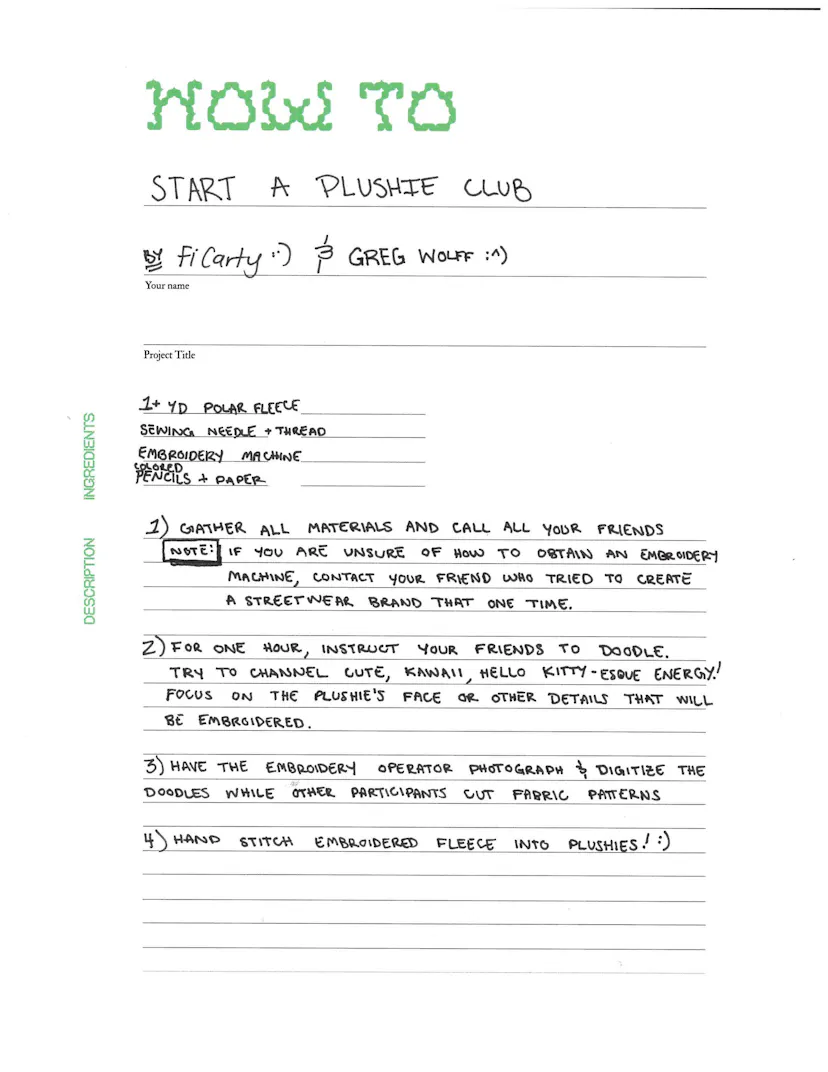 HOW TO
START A PLUSHIE CLUB
BY Fi Carty :) & GREG WOLFF :^)
Your name
Project Title
INGREDIENTS
1+ YD POLAR FLEECE
SEWING NEEDLE + THREAD
EMBROIDERY MACHINE
COLORED
PENCILS + PAPER
DESCRIPTION
1) GATHER ALL MATERIALS AND CALL ALL YOUR FRIENDS
NOTE: IF YOU ARE UNSURE OF HOW TO OBTAIN AN EMBROIDERY
MACHINE, CONTACT YOUR FRIEND WHO TRIED TO CREATE
A STREETWEAR BRAND THAT ONE TIME.
2) FOR ONE HOUR, INSTRUCT YOUR FRIENDS TO DOODLE.
TRY TO CHANNEL CUTE, KAWAII, HELLO KITTY-ESQUE ENERGY!
FOCUS ON THE PLUSHIE'S FACE OR OTHER DETAILS THAT WILL
BE EMBROIDERED.
3) HAVE THE EMBROIDERY OPERATOR PHOTOGRAPH & DIGITIZE THE
DOODLES WHILE OTHER PARTICIPANTS CUT FABRIC PATTERNS
4) HAND STITCH EMBROIDERED FLEECE INTO PLUSHIES! :)